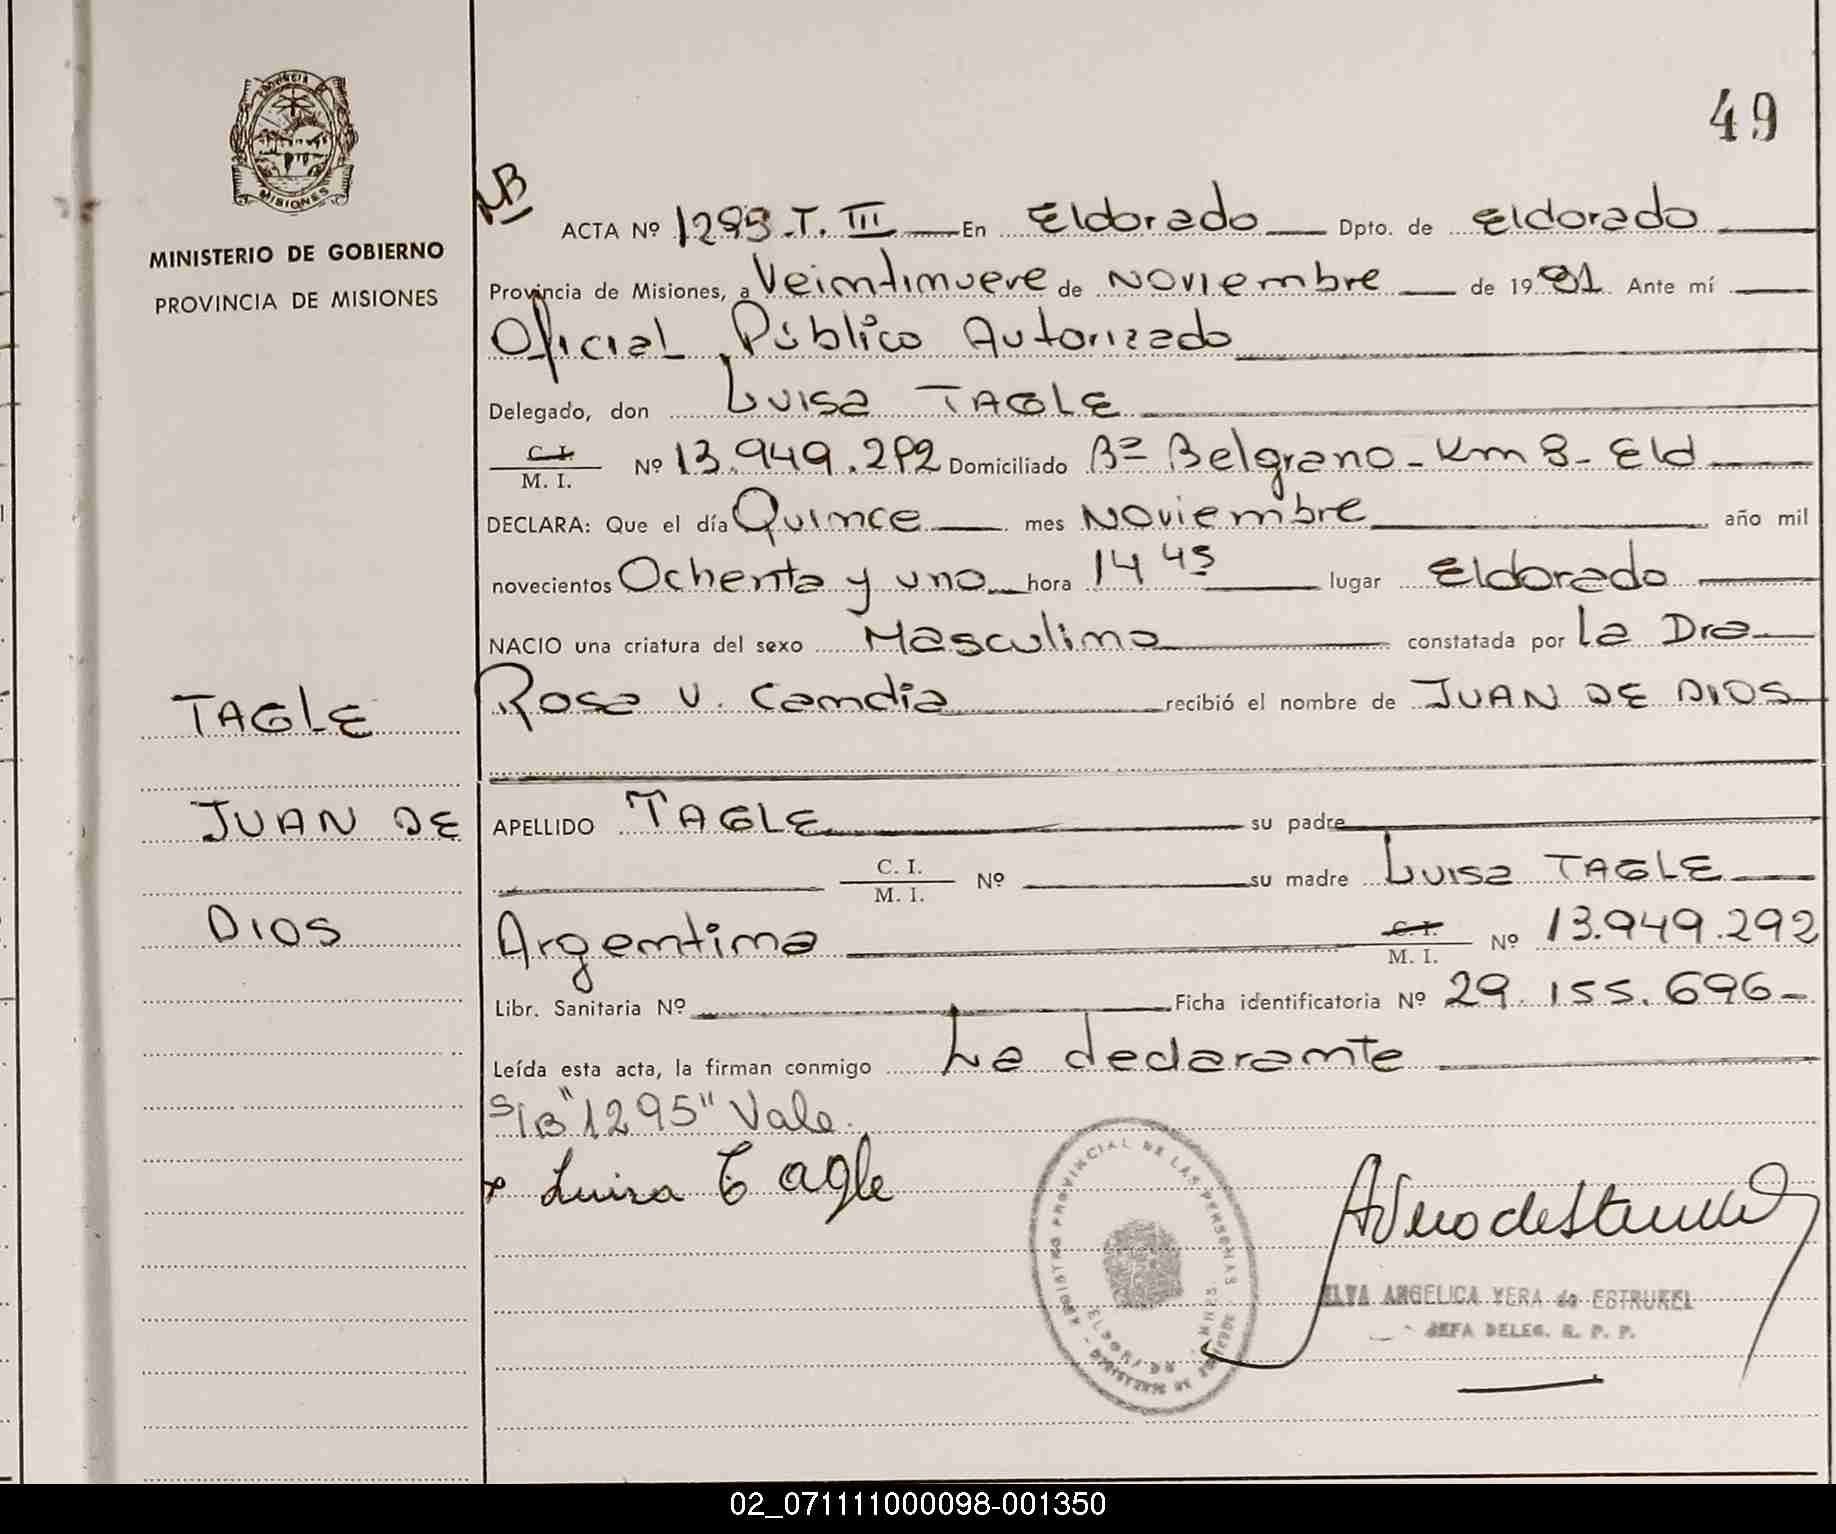 49
NB
MINISTERIO DE GOBIERNO
PROVINCIA DE MISIONES
ACTA Nº 1295 T. III En Eldorado Dpto. de Eldorado
Provincia de Misiones, a Veintinueve de Noviembre de 1981 Ante mí
Oficial Público Autorizado
Delegado, don Luisa TAGLE
C. I.
M. I. Nº 13.949.292 Domiciliado Bº Belgrano - Km 8 - Eld
DECLARA: Que el día Quince mes Noviembre año mil
novecientos Ochenta y uno hora 14 45 lugar Eldorado
NACIO una criatura del sexo Masculino constatada por la Dra
Rosa V. Candia recibió el nombre de JUAN DE DIOS
TAGLE
JUAN DE
DIOS
APELLIDO TAGLE su padre
C. I.
M. I. Nº su madre Luisa TAGLE
Argentina C. I.
M. I. Nº 13.949.292
Libr. Sanitaria Nº Ficha identificatoria Nº 29.155.696-
Leída esta acta, la firman conmigo La declarante
S/B "1295" Vale.
x Luisa Tagle
REGISTRO PROVINCIAL DE LAS PERSONAS
ELVA ANGELICA VERA de ESTRUKEL
JEFA DELEG. R. P. P.
02_071111000098-001350